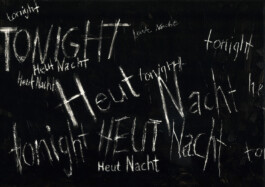 tonight
TONIGHT
Heut Nacht
tonight
Heut Nacht
Heut Nacht
tonight
Heut Nacht
tonight HEUT NACHT
Heut Nacht